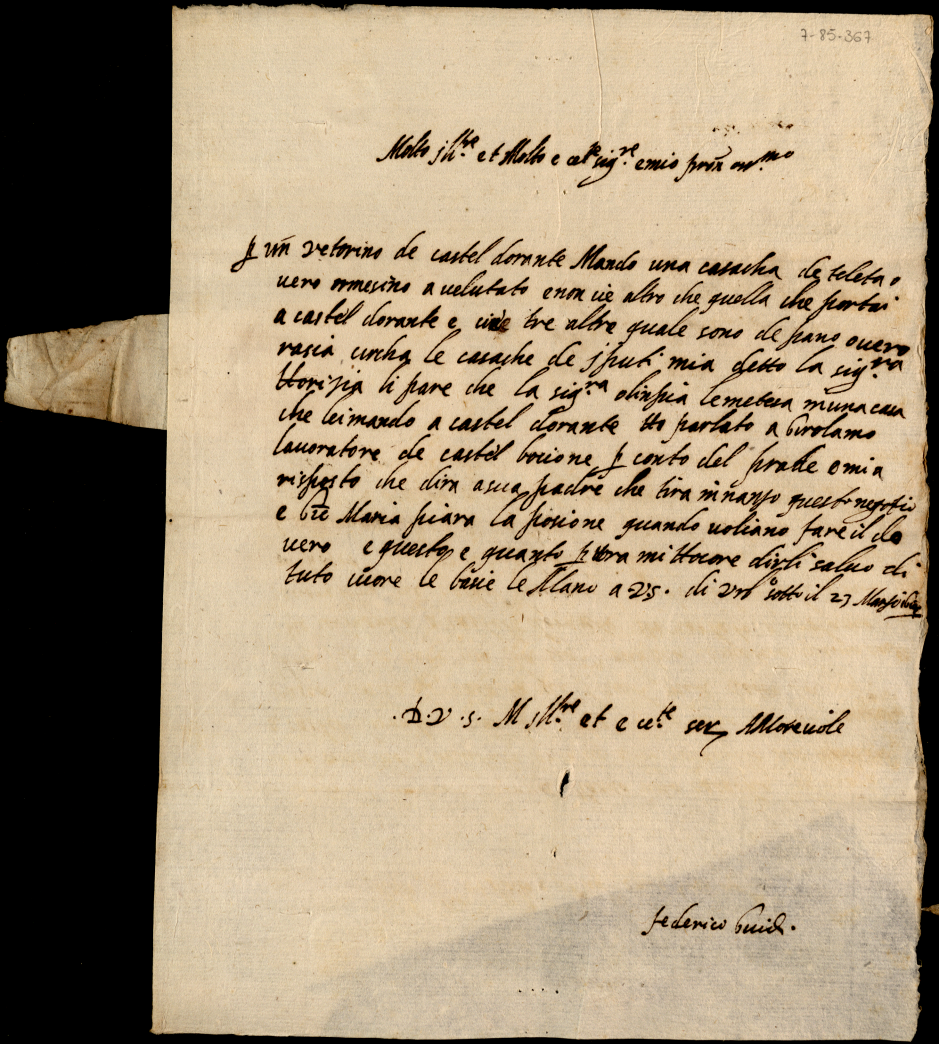 7-85-367
Molto jll.re et Molto e ce.te sig.re e mio pron oss.mo
p un vetorino de castel dorante Mando una casacha de teleta o
vero ormesino a velutato e non vie altro che quella che portai
a castel dorante e vie tre altre quale sono de pano overo
rasia circha le casache de jputi mia detto la sig.ra
li pare che la sig.ra olinpia le meteva in una casa
che lei mando a castel dorante tto parlato a Girolamo
lavoratore de castel bocione p conto del prade e mia
risposto che dira a sua padre che tira inanso questo negotio
e Maria piara la posione quando voliano fare il do
vero e questo e quanto p ora mi ttocore dirli salvo di
tuto cuore le bacie le Mano a VS. di Urb.o sotto il 23 Marso
.D.V.S. M jll.re et e ce.te ser AMorevole
federico Guidi.